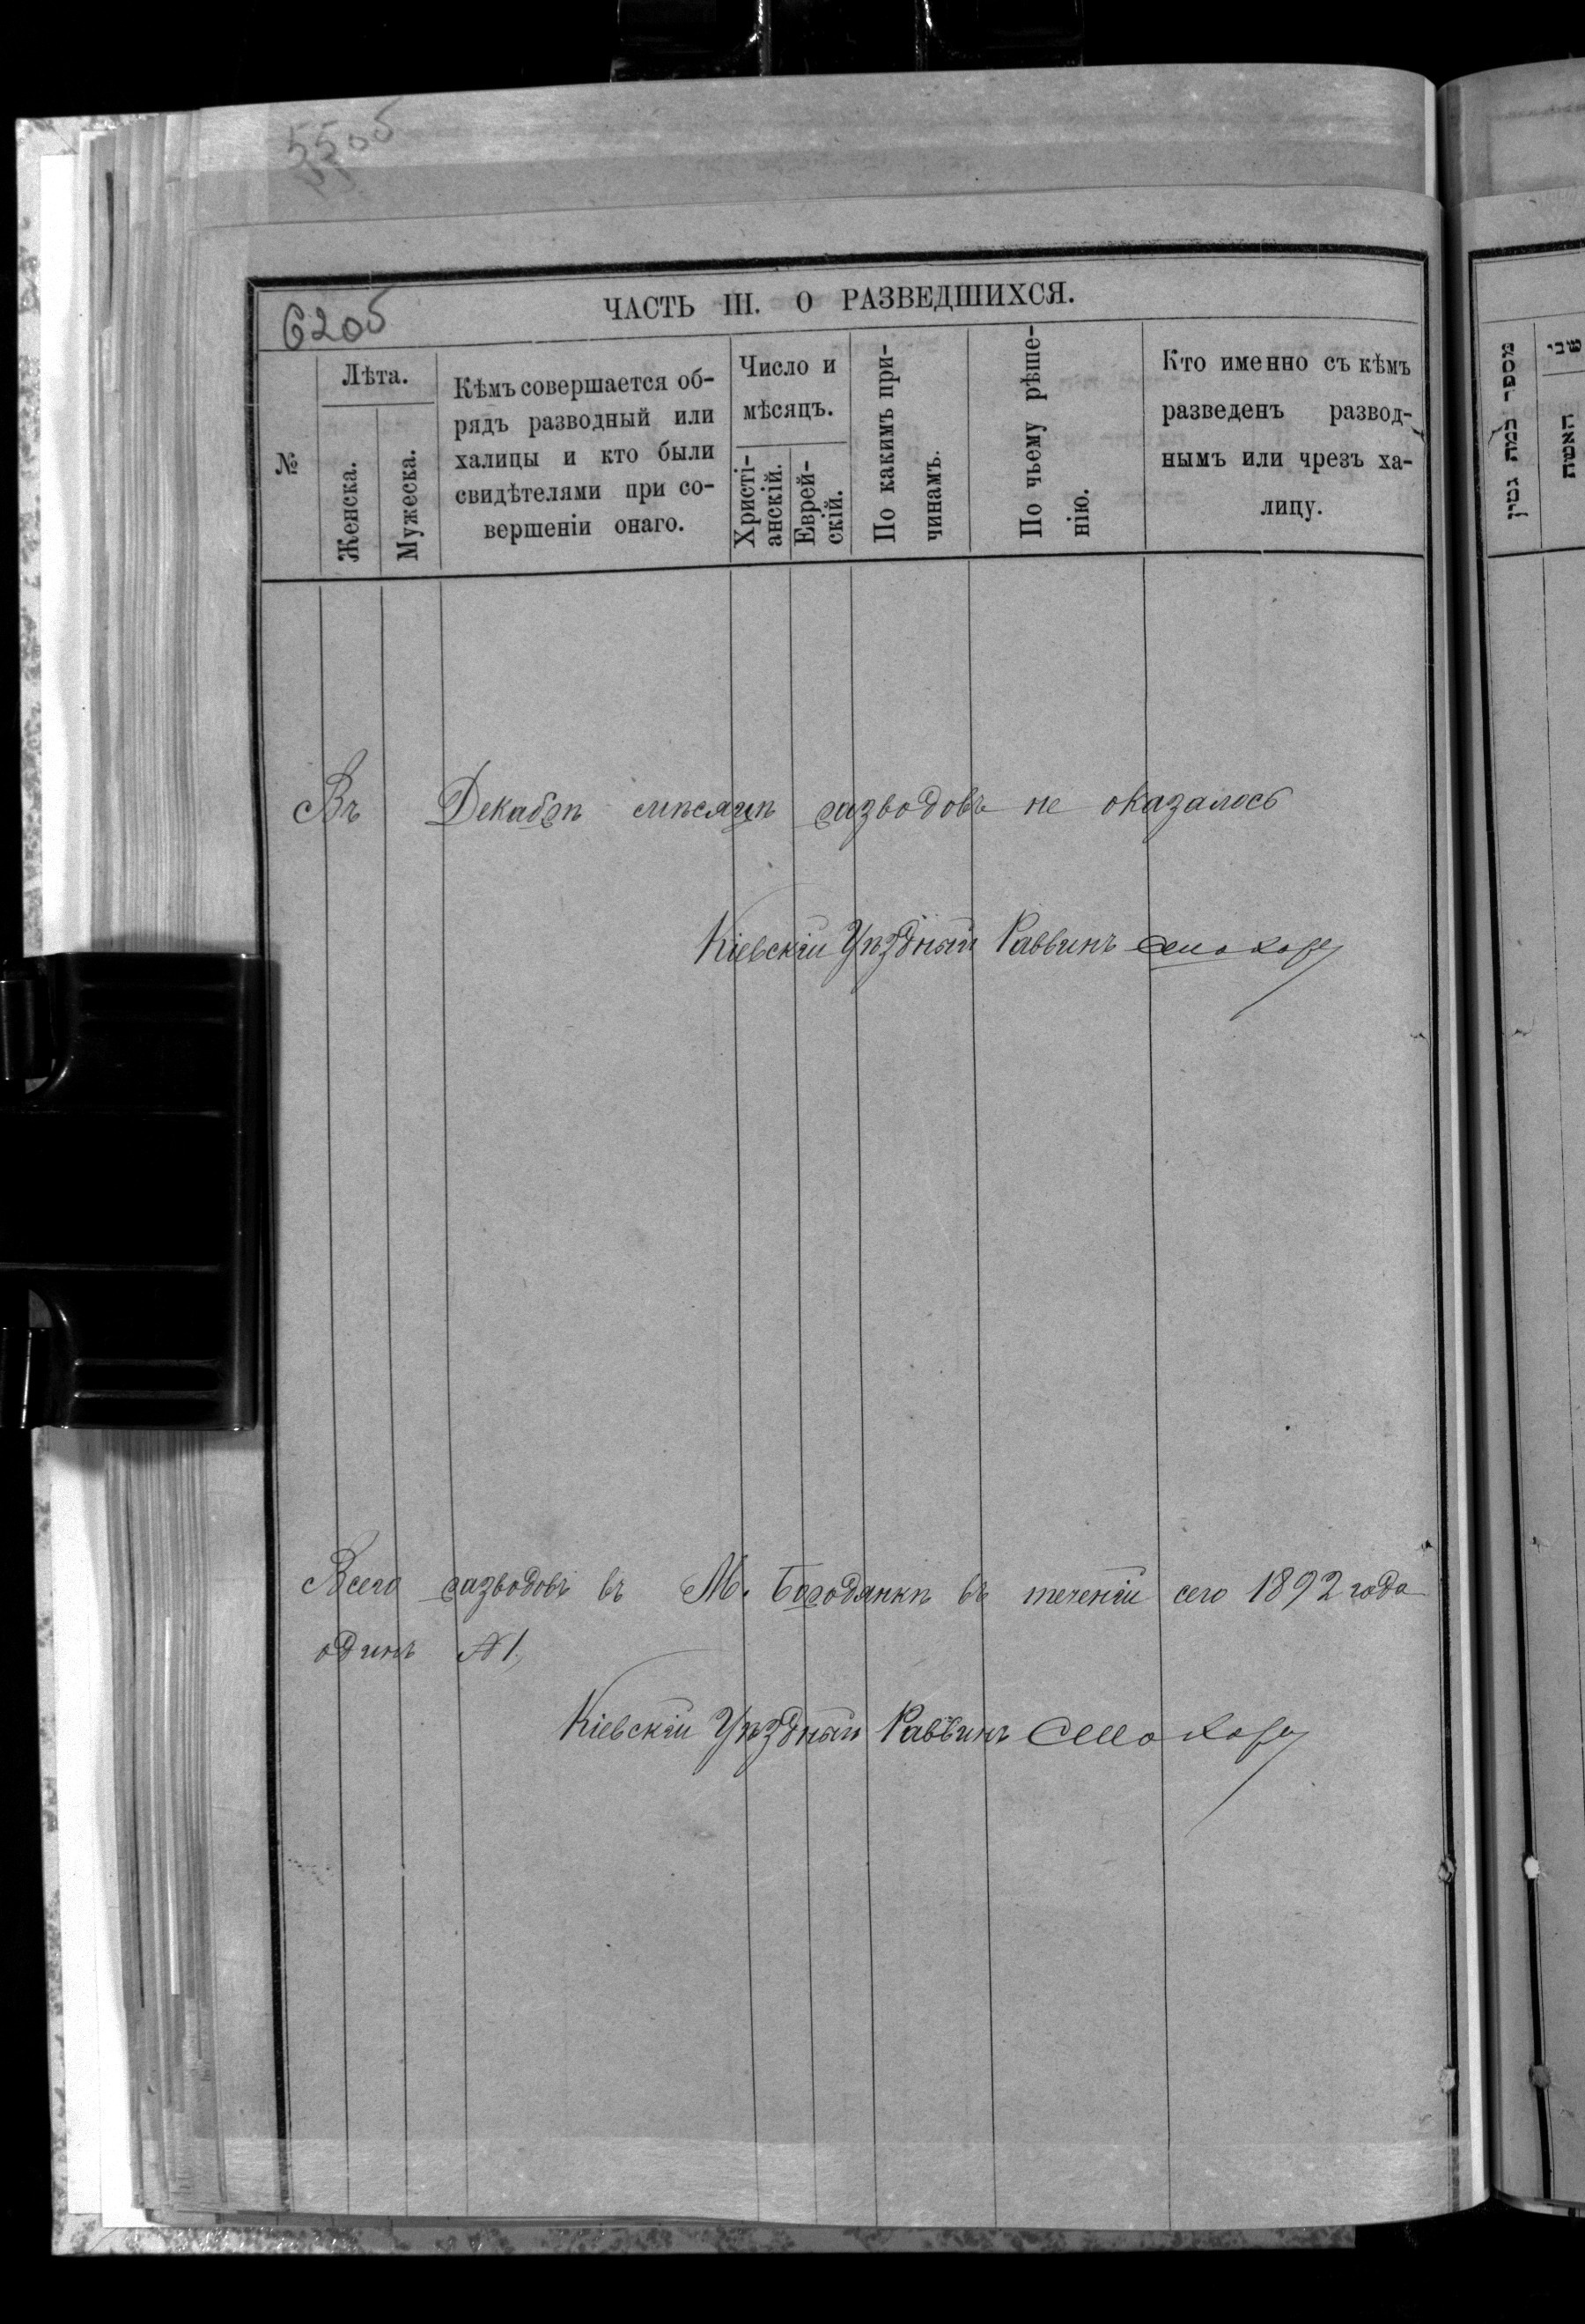 55об
62об
ЧАСТЬ III. О РАЗВЕДШИХСЯ.
№
Лѣта.
Женска.
Мужеска.
Кѣмъ совершается об-
рядъ разводный или
халицы и кто были
свидѣтелями при со-
вершеніи онаго.
Число и
мѣсяцъ.
Христі-
анскій.
Еврей-
скій.
По какимъ при-
чинамъ.
По чьему рѣше-
нію.
Кто именно съ кѣмъ
разведенъ развод-
нымъ или чрезъ ха-
лицу.
Въ Декабрѣ мѣсяцѣ разводовъ не оказалось
Кіевскій Уѣздный Раввинъ
Всего разводовъ въ М. Бородянкѣ въ теченіи сего 1892 года
одинъ №1,
Кіевскій Уѣздный Раввинъ
מספר כמה גטין
שני
האשה